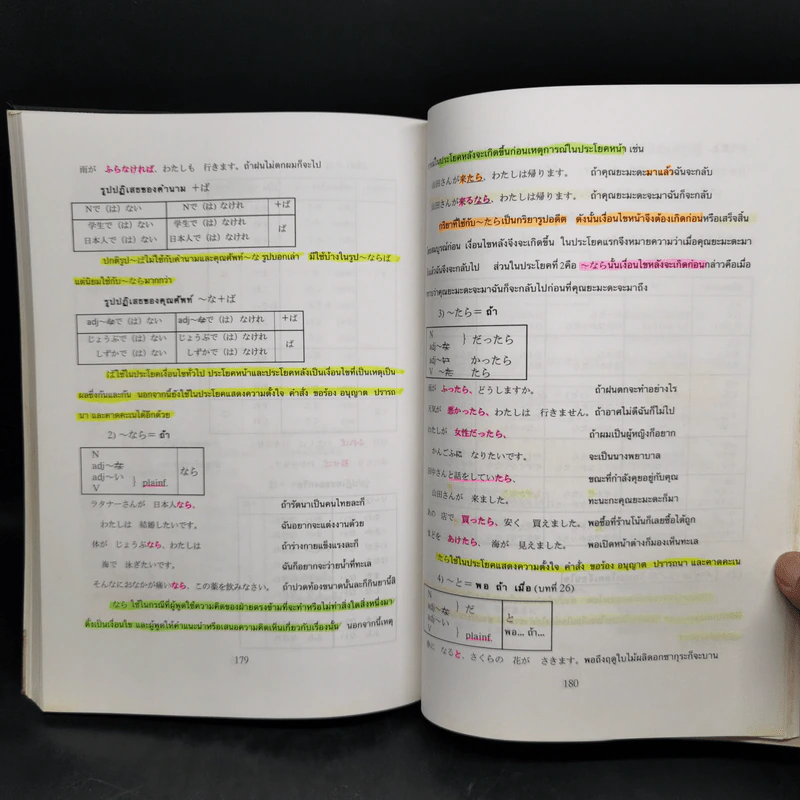 雨が ふらなければ、わたしも 行きます。ถ้าฝนไม่ตกผมก็จะไป
รูปปฏิเสธของคำนาม +ば
Nで（は）ない Nで（は）なけれ +ば
学生で（は）ない 学生で（は）なけれ ば
日本人で（は）ない 日本人で（は）なけれ
ปกติรูป ~ば ไม่ใช้กับคำนามและคุณศัพท์ ~な รูปบอกเล่า มีใช้บ้างในรูป ~ならば
แต่นิยมใช้กับ ~なら มากกว่า
รูปปฏิเสธของคุณศัพท์ ~な+ば
adj~なで（は）ない adj~なで（は）なけれ +ば
じょうぶで（は）ない じょうぶで（は）なけれ ば
しずかで（は）ない しずかで（は）なけれ
ば ใช้ในประโยคเงื่อนไขทั่วไป ประโยคหน้าและประโยคหลังเป็นเงื่อนไขที่เป็นเหตุเป็น
ผลซึ่งกันและกัน นอกจากนี้ยังใช้ในประโยคแสดงความตั้งใจ คำสั่ง ขอร้อง อนุญาต ปรารถ
นา และคาดคะเนได้อีกด้วย
2) ~なら = ถ้า
N
adj~な
adj~い
V } plainf. なら
ラタナーさんが 日本人なら、 ถ้ารัตนาเป็นคนไทยละก็
わたしは 結婚したいです。 ฉันอยากจะแต่งงานด้วย
体が じょうぶなら、わたしは ถ้าร่างกายแข็งแรงละก็
海で 泳ぎたいです。 ฉันก็อยากจะว่ายน้ำที่ทะเล
そんなにおなかが痛いなら、この薬を飲みなさい。 ถ้าปวดท้องขนาดนั้นละก็กินยานี้สิ
なら ใช้ในกรณีที่ผู้พูดใช้ความคิดของฝ่ายตรงข้ามที่จะทำหรือไม่ทำสิ่งใดสิ่งหนึ่งมา
ตั้งเป็นเงื่อนไข และผู้พูดให้คำแนะนำหรือเสนอความคิดเห็นเกี่ยวกับเรื่องนั้น นอกจากนี้เหตุ
179
ในประโยคหลังจะเกิดขึ้นก่อนเหตุการณ์ในประโยคหน้า เช่น
山田さんが来たら、わたしは帰ります。 ถ้าคุณยะมะดะมาแล้วฉันจะกลับ
山田さんが来るなら、わたしは帰ります。 ถ้าคุณยะมะดะจะมาฉันก็จะกลับ
กริยาที่ใช้กับ ~たら เป็นกริยารูปอดีต ดังนั้นเงื่อนไขหน้าจึงต้องเกิดก่อนหรือเสร็จสิ้น
สมบูรณ์ก่อน เงื่อนไขหลังจึงจะเกิดขึ้น ในประโยคแรกจึงหมายความว่าเมื่อคุณยะมะดะมา
แล้วฉันจึงจะกลับไป ส่วนในประโยคที่ 2 คือ ~なら นั้นเงื่อนไขหลังจะเกิดก่อน กล่าวคือเมื่อ
ทราบว่าคุณยะมะดะจะมาฉันก็จะกลับไปก่อนที่คุณยะมะดะจะมาถึง
3) ~たら = ถ้า
N
adj~な } だったら
adj~い かったら
V ~た たら
雨が ふったら、どうしますか。 ถ้าฝนตกจะทำอย่างไร
天気が 悪かったら、わたしは 行きません。 ถ้าอากาศไม่ดีฉันก็ไม่ไป
わたしが 女性だったら、 ถ้าผมเป็นผู้หญิงก็อยาก
かんごふに なりたいです。 จะเป็นนางพยาบาล
田中さんと話をしていたら、 ขณะที่กำลังคุยอยู่กับคุณ
山田さんが 来ました。 ทะนะกะคุณยะมะดะก็มา
あの 店で 買ったら、安く 買えました。 พอซื้อที่ร้านโน้นก็เลยซื้อได้ถูก
まどを あけたら、海が 見えました。 พอเปิดหน้าต่างก็มองเห็นทะเล
たら ใช้ในประโยคแสดงความตั้งใจ คำสั่ง ขอร้อง อนุญาต ปรารถนา และคาดคะเน
4) ~と = พอ ถ้า เมื่อ (บทที่ 26)
N
adj~な } だ
adj~い
V } plainf. と
พอ... ถ้า...
春に なると、さくらの 花が さきます。 พอถึงฤดูใบไม้ผลิดอกซากุระก็จะบาน
180